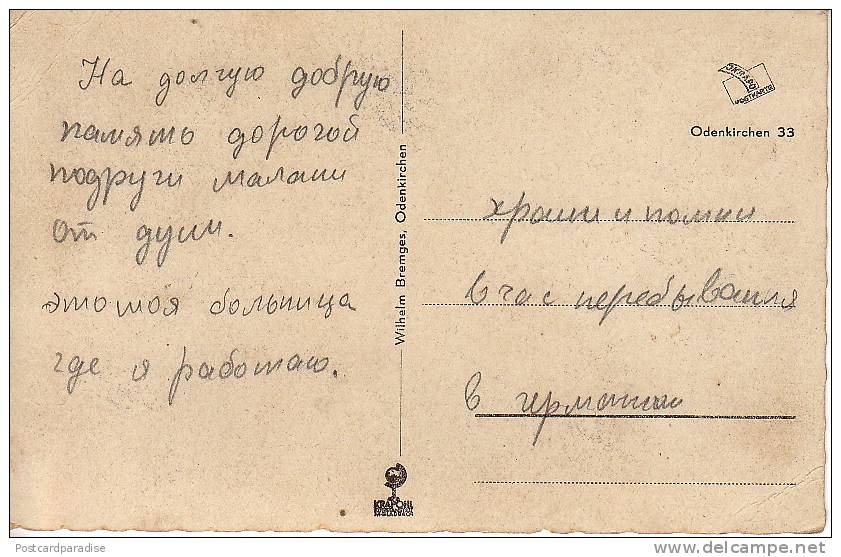 На долгую добрую
память дорогой
подруги малани
от души.
это моя больница
где я работаю.
Wilhelm Bremges, Odenkirchen
KRAPOHL
M.GLADBACH
POSTKARTE
Odenkirchen 33
храни и помни
в час перебывания
в германии
Postcardparadise
www.delcampe.net